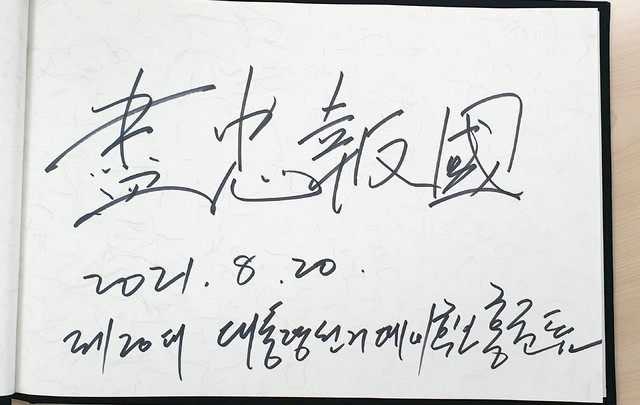 盡忠報國
2021. 8. 20.
제20대 대통령선거 예비후보 홍준표